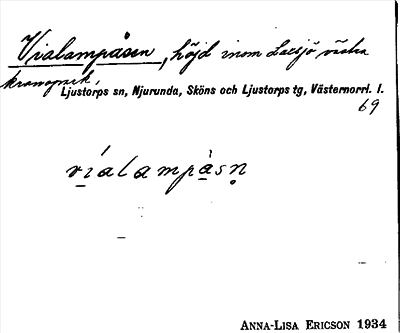 Vialampåsen, höjd inom Laesjö västra
kronopark,
Ljustorps sn, Njurunda, Sköns och Ljustorps tg, Västernorrl. l.
69
víalampàsn̥
ANNA-LISA ERICSON 1934